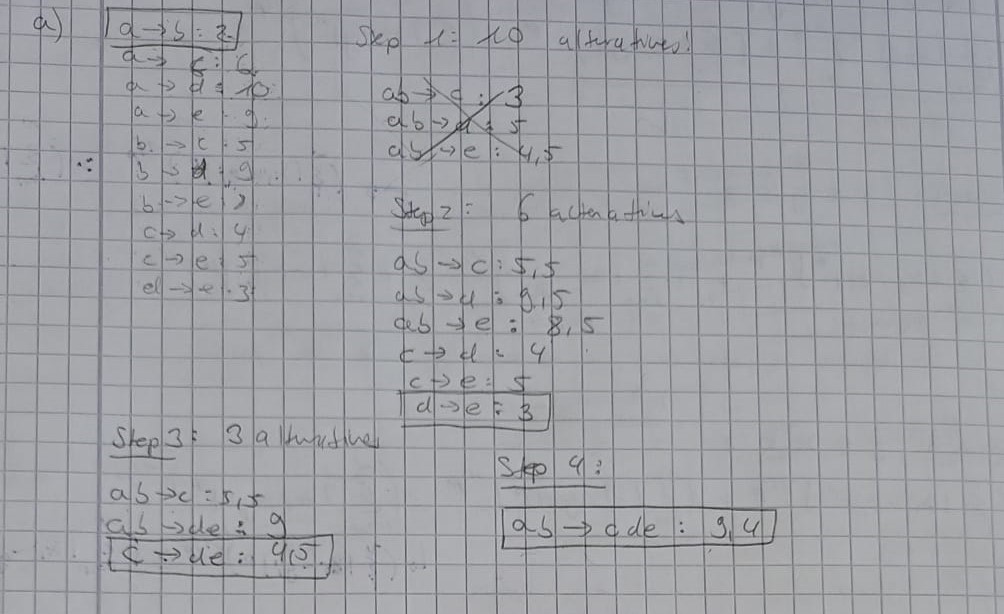 a)
a → b : 2
a → c : 6
a → d : 10
a → e : 9
b → c : 5
b → d : 9
b → e
c → d : 4
c → e : 5
d → e : 3
Step 1 : 10 alteratives!
ab → c : 3
ab → d : 5
ab → e : 4,5
Step 2 : 6 alteratives
ab → c : 5,5
ab → d : 9,5
ab → e : 8,5
c → d : 4
c → e : 5
d → e : 3
Step 3 : 3 alteratives
ab → c : 5,5
ab → de : 9
c → de : 4,5
Step 4 :
ab → cde :